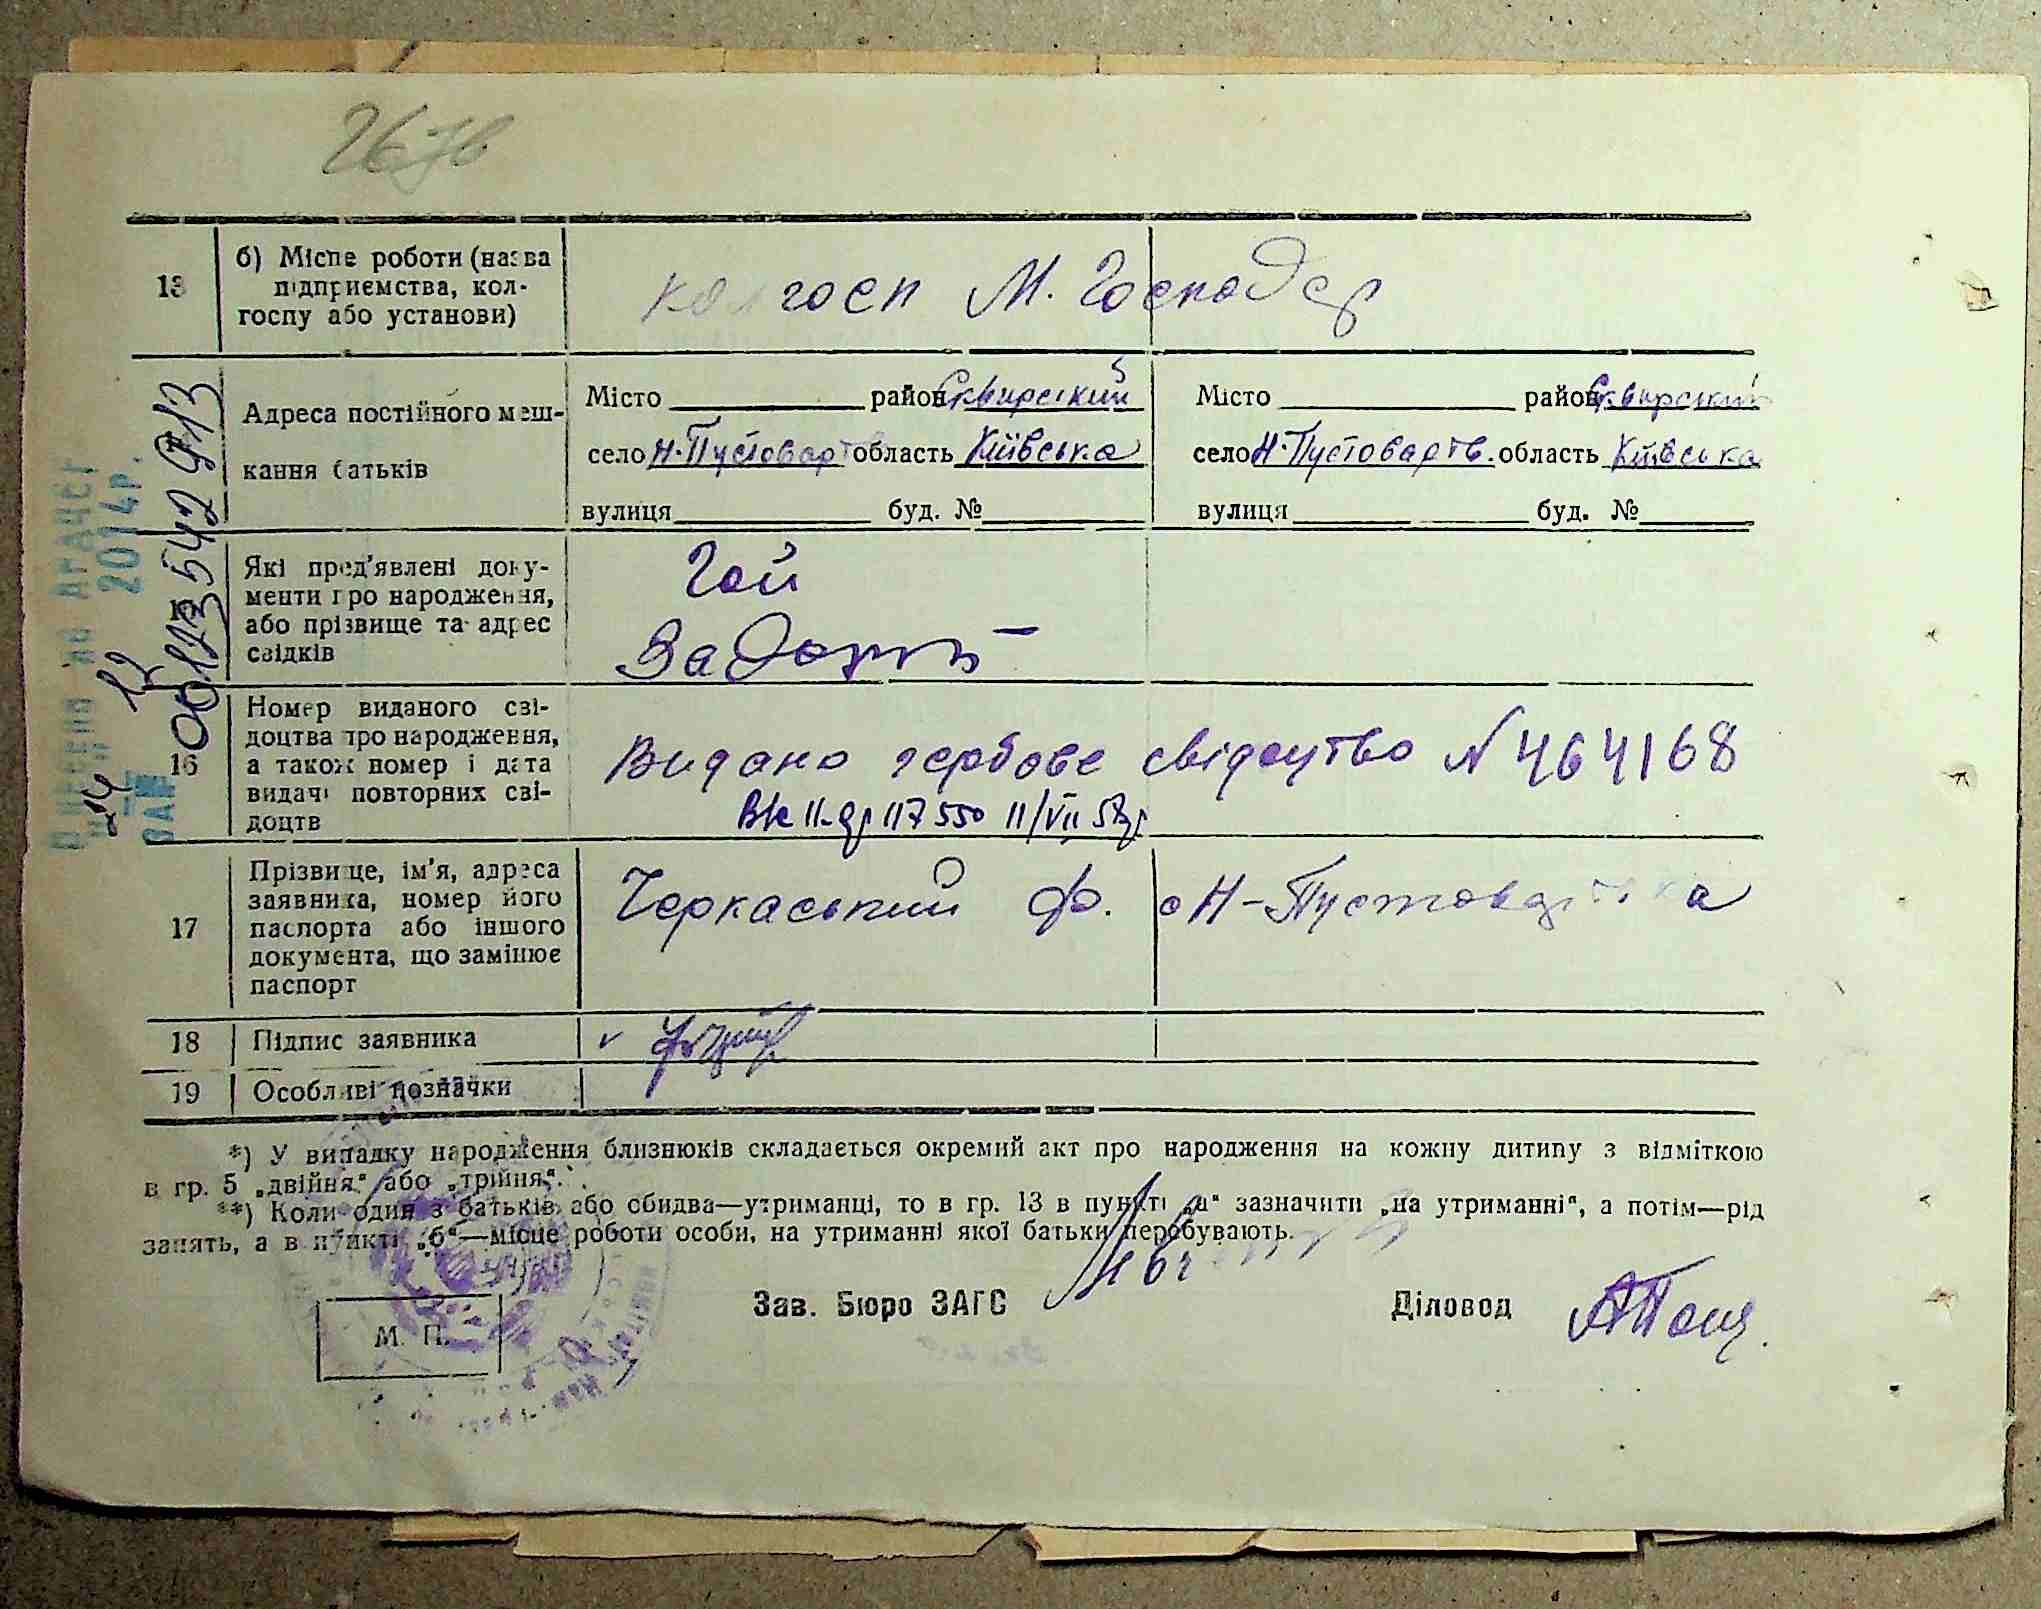 267в
13
б) Місце роботи (назва
підприємства, кол-
госпу або установи)
колгосп М. Господар
Адреса постійного меш-
кання батьків
Місто район Сквирський
село Н-Пустоварт область Київська
вулиця буд. №
Місто район Сквирський
село Н-Пустоварів. область Київська
вулиця буд. №
Які пред'явлені доку-
менти про народження,
або прізвище та адрес
свідків
Гай
16
Номер виданого сві-
доцтва про народження,
а також номер і дата
видачі повторних сві-
доцтв
Видано гербове свідоцтво N 464168
117550 11/VII
17
Прізвище, ім'я, адреса
заявника, номер його
паспорта або іншого
документа, що замінює
паспорт
Черкаський Ф.
с Н-Пустоварівка
18
Підпис заявника
19
Особливі позначки
*) У випадку народження близнюків складається окремий акт про народження на кожну дитину з відміткою
в гр. 5 „двійня“ або „трійня“.
**) Коли один з батьків або обидва—утриманці, то в гр. 13 в пункті „а“ зазначити „на утриманні“, а потім—рід
занять, а в пункті „б“—місце роботи особи, на утриманні якої батьки перебувають.
Зав. Бюро ЗАГС
Діловод
М. П.
2014р.
00123542913